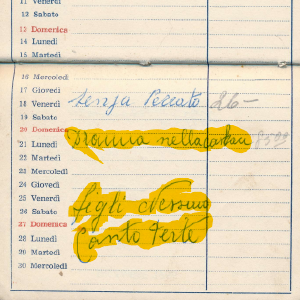 11 Venerdì
12 Sabato
13 Domenica
14 Lunedì
15 Martedì
16 Mercoledì
17 Giovedì
18 Venerdì Senza Peccato 26-
19 Sabato
20 Domenica
21 Lunedì nella 8599
22 Martedì
23 Mercoledì
24 Giovedì
25 Venerdì figli Nessuno
26 Sabato
27 Domenica Canto Forte
28 Lunedì
29 Martedì
30 Mercoledì